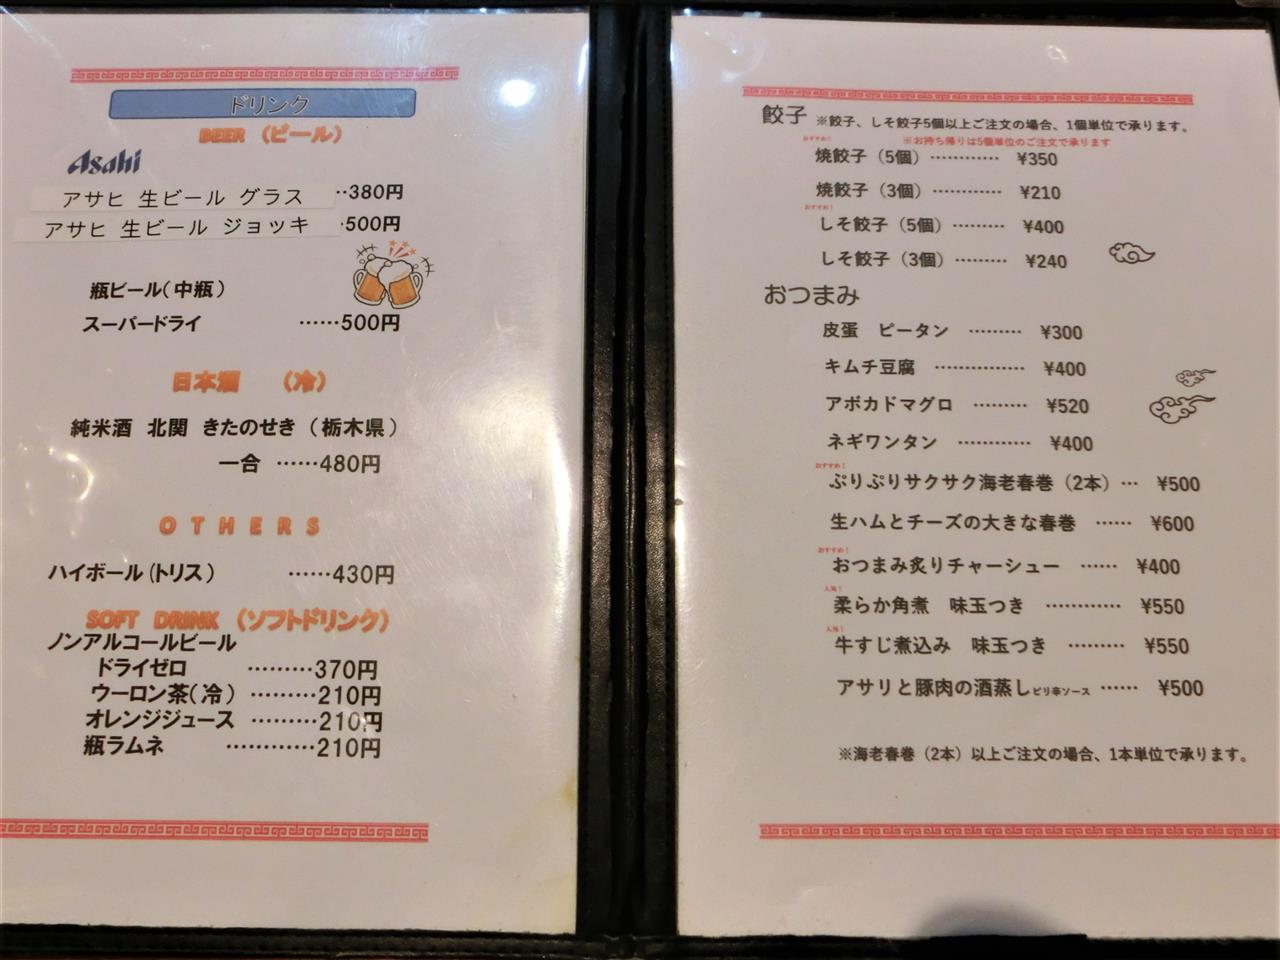 ドリンク
BEER (ビール)
Asahi
アサヒ 生ビール グラス ‥380円
アサヒ 生ビール ジョッキ ‥500円
瓶ビール(中瓶)
スーパードライ ……500円
日本酒 (冷)
純米酒 北関 きたのせき (栃木県)
一合 ……480円
OTHERS
ハイボール(トリス) ……430円
SOFT DRINK (ソフトドリンク)
ノンアルコールビール
ドライゼロ ………370円
ウーロン茶(冷) ………210円
オレンジジュース ………210円
瓶ラムネ …………210円
餃子 ※餃子、しそ餃子5個以上ご注文の場合、1個単位で承ります。
※お持ち帰りは5個単位のご注文で承ります
おすすめ!
焼餃子(5個) ………… ¥350
焼餃子(3個) ………… ¥210
おすすめ!
しそ餃子(5個) ……… ¥400
しそ餃子(3個) ……… ¥240
おつまみ
皮蛋 ピータン ……… ¥300
キムチ豆腐 …………… ¥400
アボカドマグロ ……… ¥520
ネギワンタン ………… ¥400
おすすめ!
ぷりぷりサクサク海老春巻(2本) … ¥500
生ハムとチーズの大きな春巻 …… ¥600
おすすめ!
おつまみ炙りチャーシュー …… ¥400
人気!
柔らか角煮 味玉つき ………… ¥550
人気!
牛すじ煮込み 味玉つき ……… ¥550
アサリと豚肉の酒蒸しピリ辛ソース …… ¥500
※海老春巻(2本)以上ご注文の場合、1本単位で承ります。